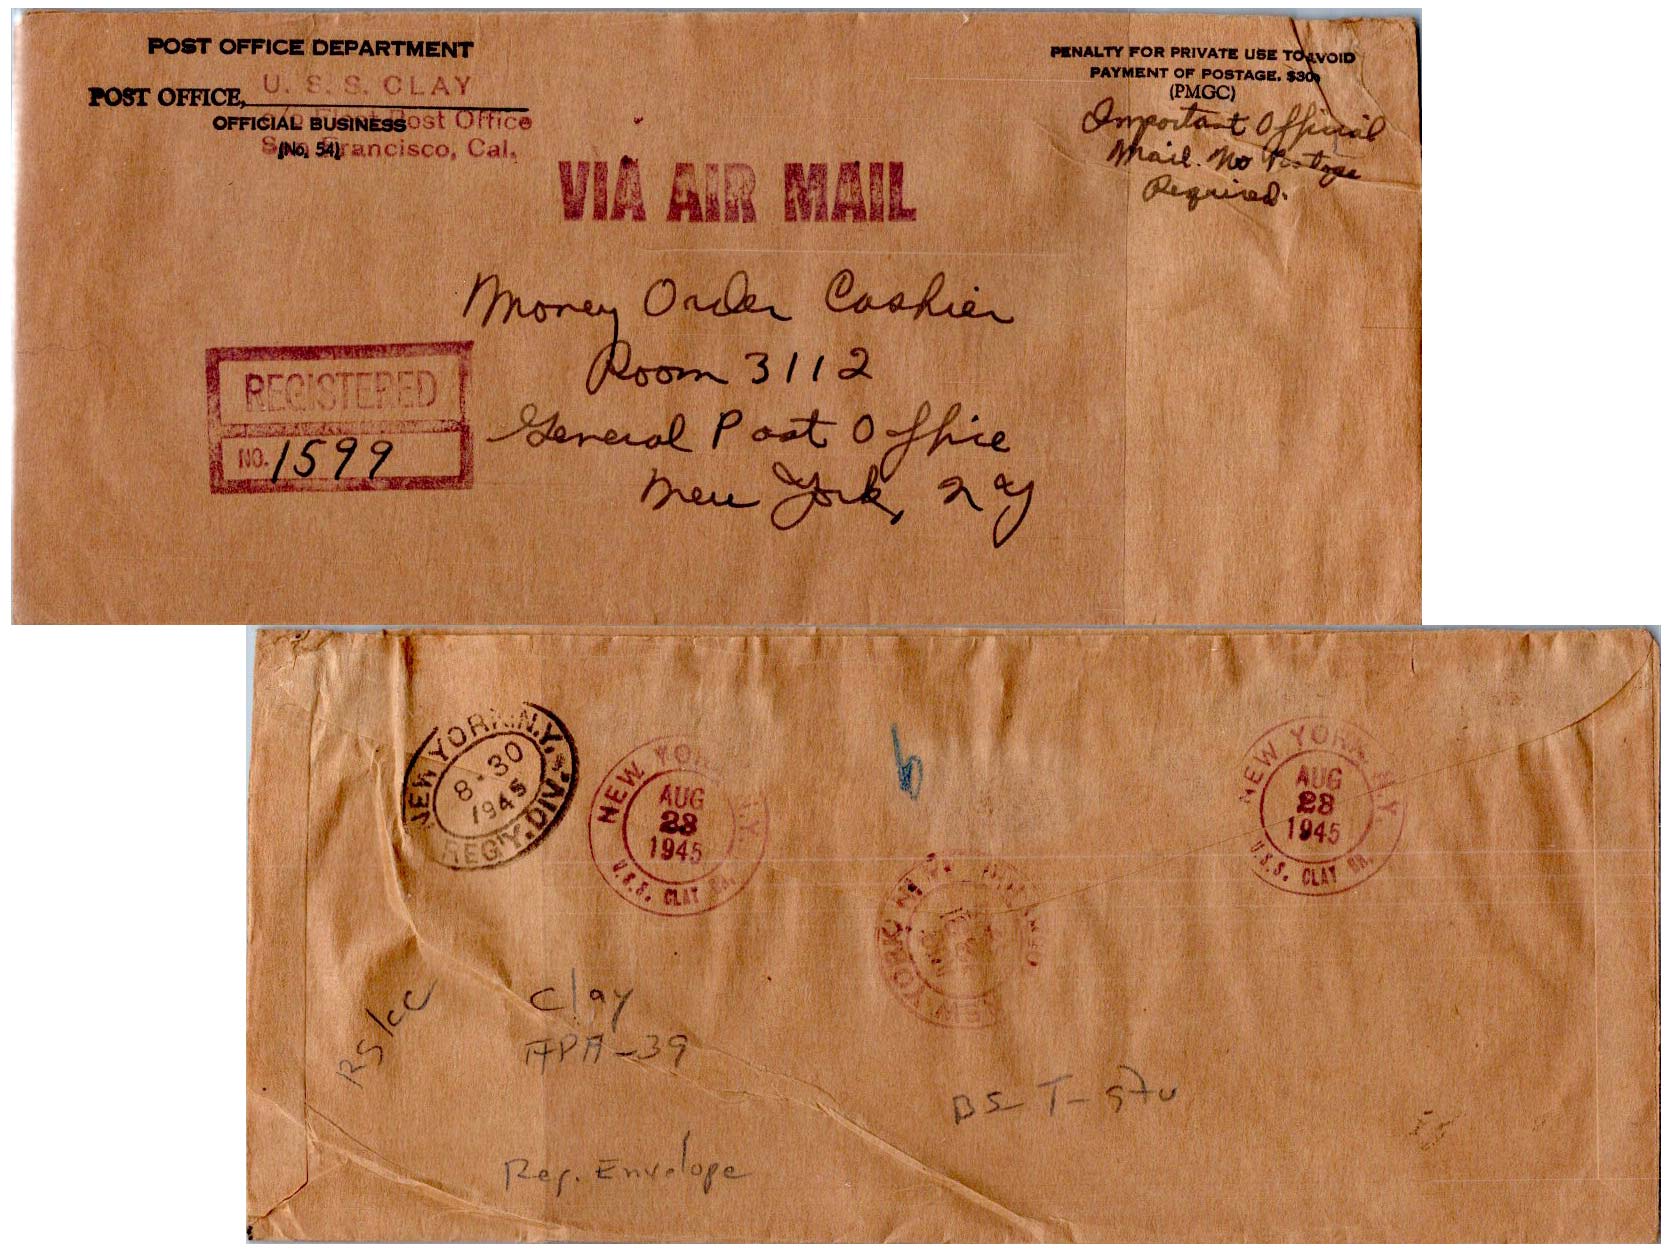 POST OFFICE DEPARTMENT
POST OFFICE,
U. S. S. CLAY
c/o Fleet Post Office
OFFICIAL BUSINESS
San Francisco, Cal.
(No. 54)
PENALTY FOR PRIVATE USE TO AVOID
PAYMENT OF POSTAGE, $300
(PMGC)
Important Official
Mail. No Postage
Required.
VIA AIR MAIL
Money Order Cashier
Room 3112
General Post Office
New York, N Y
REGISTERED
NO. 1599
NEW YORK, N.Y.
8-30
1945
REG'Y. DIV.
NEW YORK N.Y.
AUG
28
1945
U.S.S. CLAY BR.
b
NEW YORK N.Y.
AUG
28
1945
U.S.S. CLAY BR.
YORK, N.Y.
RS/CC
Clay
APA-39
BS T-
Reg. Envelope